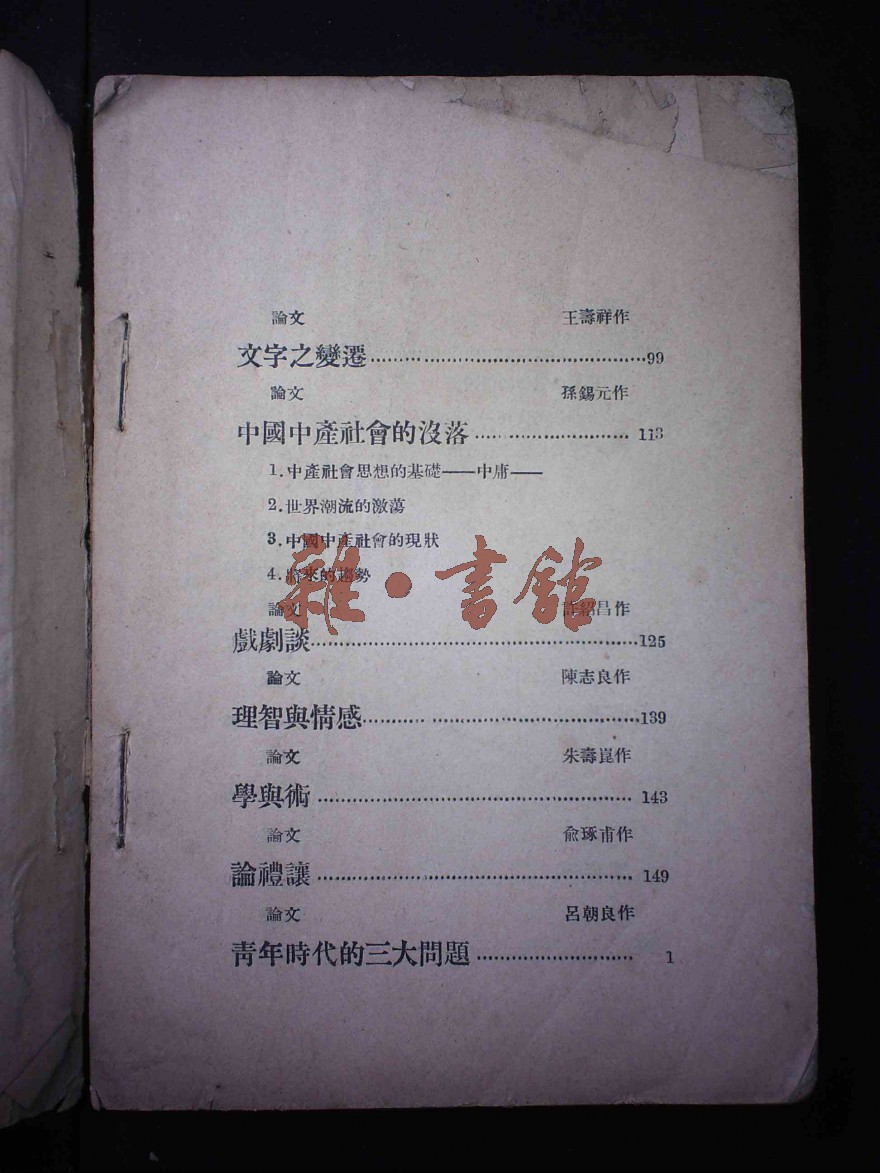 論文 王壽祥作
文字之變遷 99
論文 孫錫元作
中國中產社會的沒落 113
1.中產社會思想的基礎——中庸——
2.世界潮流的激蕩
3.中國中產社會的現狀
4.將來的趨勢
雜•書館
論文 許紹昌作
戲劇談 125
論文 陳志良作
理智與情感 139
論文 朱壽崑作
學與術 143
論文 俞琢甫作
論禮讓 149
論文 呂朝良作
青年時代的三大問題 1